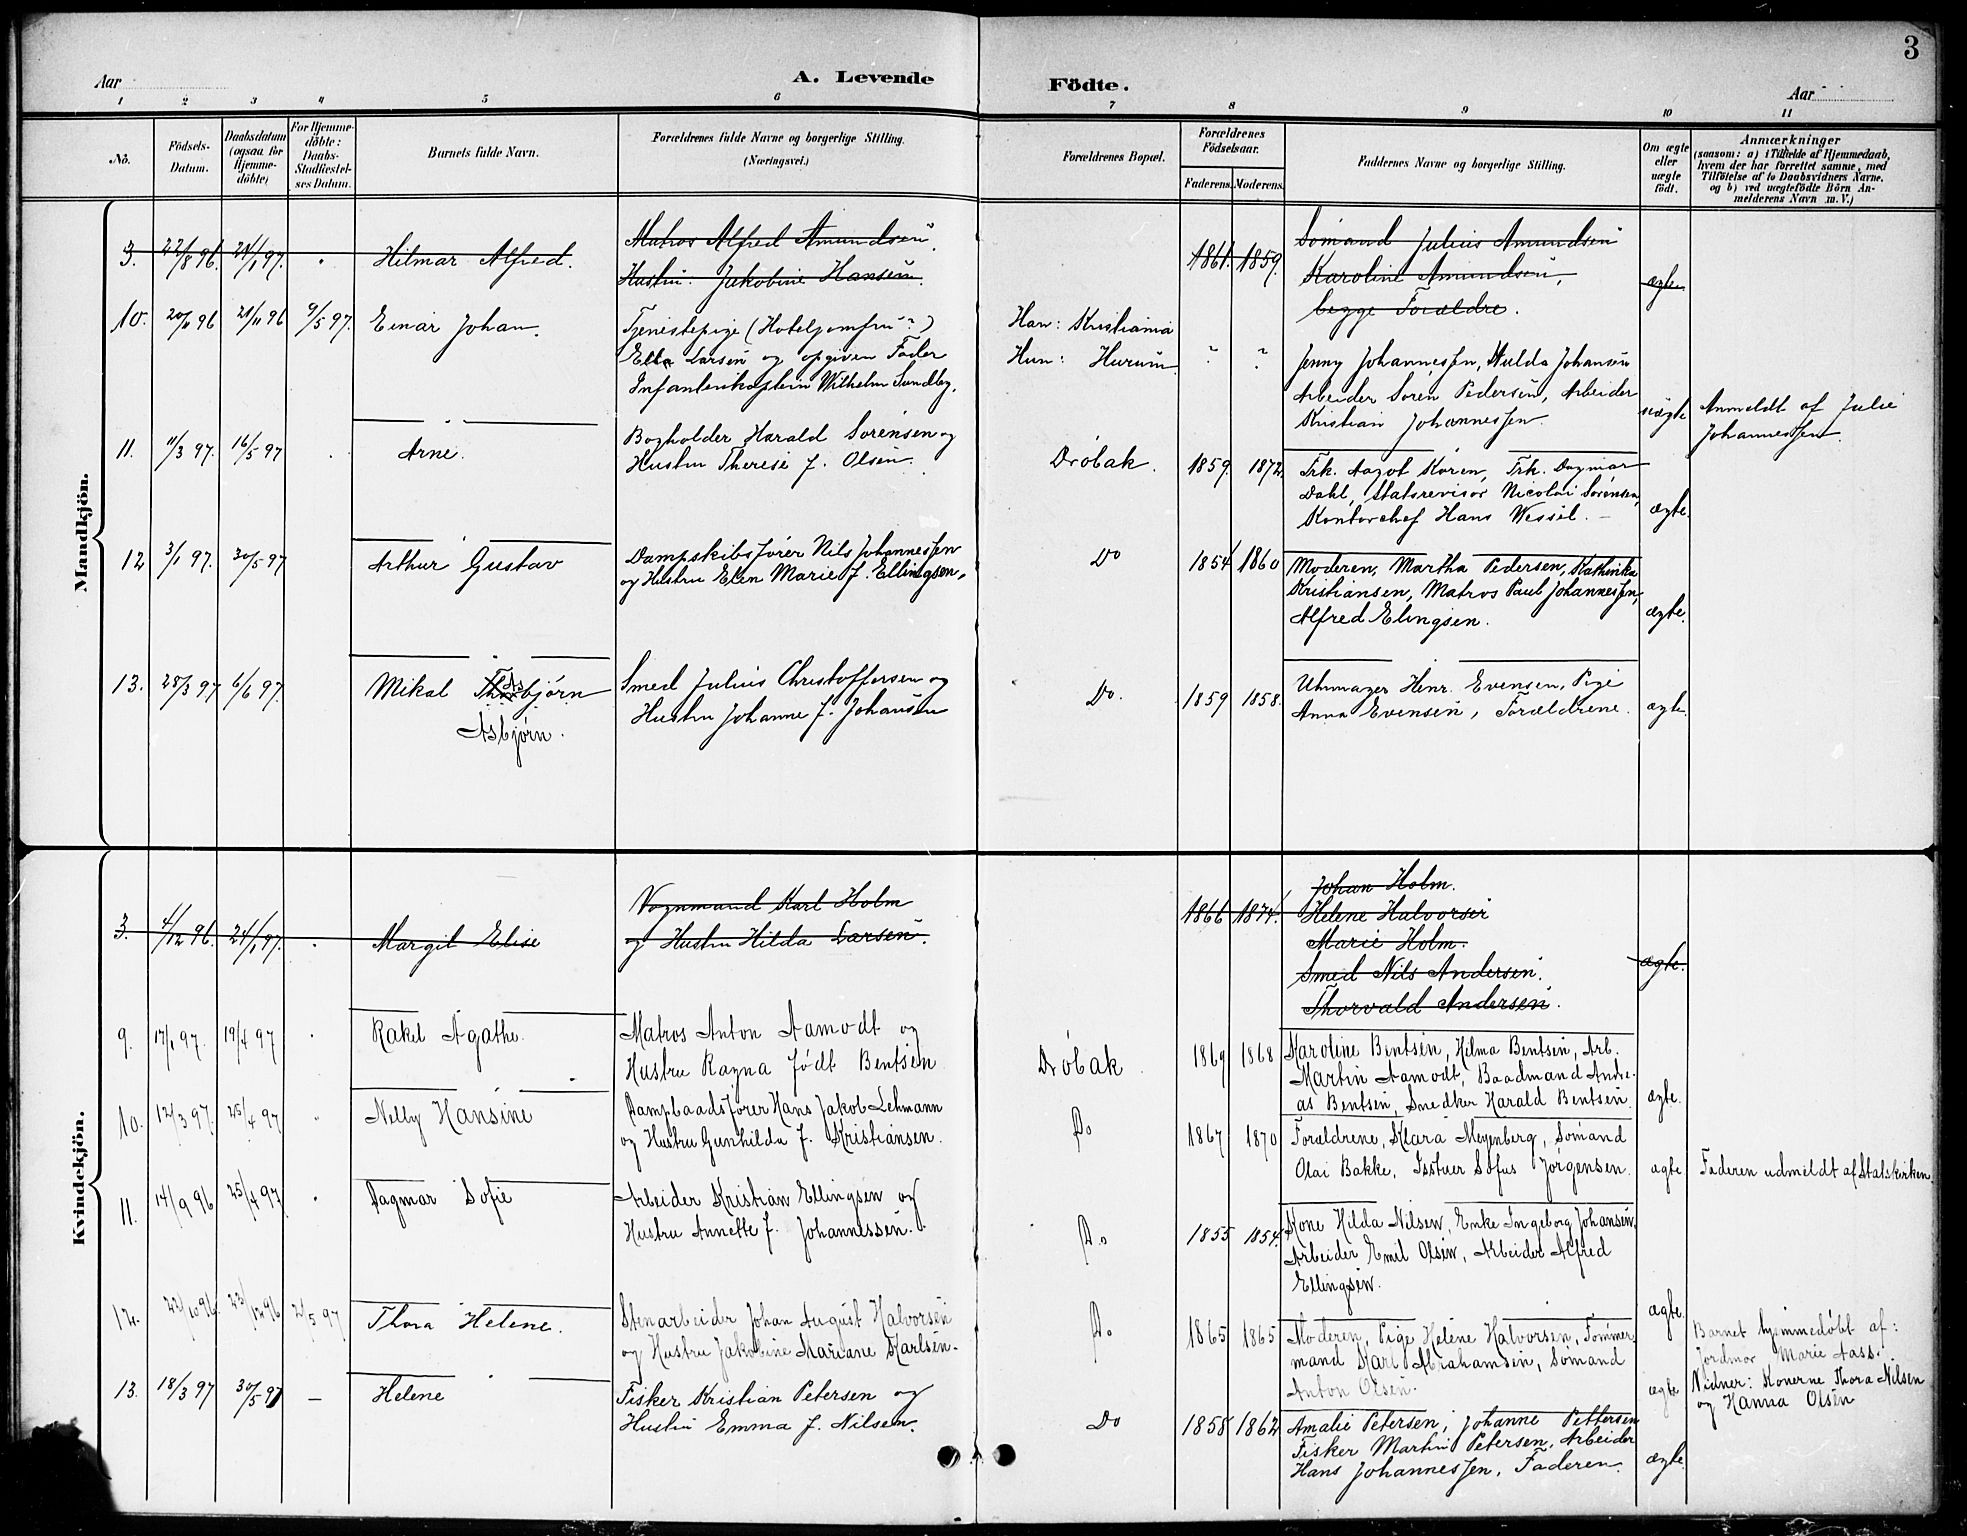 3
Aar
A. Levende Födte.
Aar
1 2 3 4 5 6 7 8 9 10 11
No.
Födsels-Datum.
Daabsdatum (ogsaa for Hjemme-döbte)
For Hjemme-döbte: Daabs-Stadfæstel-ses Datum.
Barnets fulde Navn.
Forældrenes fulde Navne og borgerlige Stilling. (Næringsvei.)
Forældrenes Bopæl.
Forældrenes Födselsaar.
Faderens. Moderens.
Faddernes Navne og borgerlige Stilling.
Om ægte eller uægte födt.
Anmærkninger
(saasom: a) i Tilfælde af Hjemmedaab,
hvem der har forrettet samme, med
Tilföielse af to Daabsvidners Navne,
og b) ved uægtefödte Börn An-
melderens Navn m. V.)
Mandkjön.
3. 22/8 96. 24/1 97. Hilmar Alfred.
Matros Alfred Amundsen
Hustru: Jakobine Hansen.
1861. 1859.
Sömand Julius Amundsen
Karoline Amundsen,
begge Forældre.
ægte
10. 20/11 96 21/11 96 9/5 97. Einar Johan.
Tjenestepige (Hoteljomfru?)
Ella Larsen og opgiven Fader
Infanterikaptein Wilhelm Sundby.
Han: Kristiania
Hun: Hurum
? ?
Jenny Johannessen, Hulda Johansen
Arbeider Sören Pedersen, Arbeider
Kristian Johannessen.
uægte
Anmeldt af Julie
Johannessen.
11. 11/3 97. 16/5 97 Arne.
Bogholder Harald Sörensen og
Hustru Therese f. Olsen.
Dröbak. 1859. 1872.
Frk. Aagot Koren, Frk. Dagmar
Dahl, Statsrevisor Nicolai Sörensen,
Kontorchef Hans Wessel. –
ægte.
12 3/1 97. 30/5 97 Arthur Gustav
Dampskibsförer Nils Johannessen
og Hustru Elen Marie f. Ellingsen.
Do 1854 1860
Moderen, Martha Pedersen, Kathinka
Kristiansen, Matros Paul Johannessen,
Alfred Elingsen.
ægte.
13. 28/3 97 6/6 97. Mikal Thorbjörn
As
Asbjørn.
Smed Julius Christoffersen og
Hustru Johanne f. Johansen
Do. 1859 1858.
Uhrmager Henr. Evensen, Pige
Anna Evensen, Forældrene.
ægte.
Kvindekjön.
3. 4/12 96. 24/1 97. Margit Elise
Vognmand Karl Holm
og Hustru Hilda Larsen.
1866 1874.
Johan Holm.
Helene Halvorsen
Marie Holm.
Smed Nils Andersen.
Thorvald Andersen.
ægte.
9. 17/1 97. 19/4 97 Rakel Agathe.
Matros Anton Aamodt og
Hustru Ragna födt Bentsen
Dröbak 1869 1868
Karoline Bentsen, Hilma Bentsen, Arb.
Martin Aamodt, Baadmand Andre-
as Bentsen, Snedker Harald Bentsen.
ægte.
10. 12/3 97. 25/4 97 Nelly Hansine
Dampbaadsförer Hans Jakob Lehmann
og Hustru Gunhilda f. Kristiansen.
Do 1867 1870
Forældrene, Klara Meyenberg, Sömand
Olai Bakke, Isstuer Sofus Jörgensen.
ægte
Faderen udmeldt af Statskirken.
11. 14/9 96 25/4 97 Dagmar Sofie
Arbeider Kristian Ellingsen og
Hustru Annette f. Johannessen.
Do 1855 1854.
Kone Hilda Nilsen, Enke Ingeborg Johansen,
Arbeider Emil Olsen, Arbeider Alfred
Ellingsen.
ægte.
12. 22/10 96. 23/12 96 2/5 97 Thora Helene.
Stenarbeider Johan August Halvorsen
og Hustru Jakobine Mariane Karlsen.
Do 1865 1865
Moderen, Pige Helene Halvorsen, Tömmer-
mand Karl Abrahamsen, Sömand
Anton Olsen.
ægte
Barnet hjemmedöbt af:
Jordmor Marie Aass.
Vidner: Konerne Thora Nilsen
og Hanna Olsen
13. 18/3 97 30/5 97 – Helene
Fisker Kristian Petersen og
Hustru Emma f. Nilsen.
Do 1858 1862
Amalie Petersen, Johanne Pettersen
Fisker Martin Petersen, Arbeider
Hans Johannessen, Faderen.
ægte.